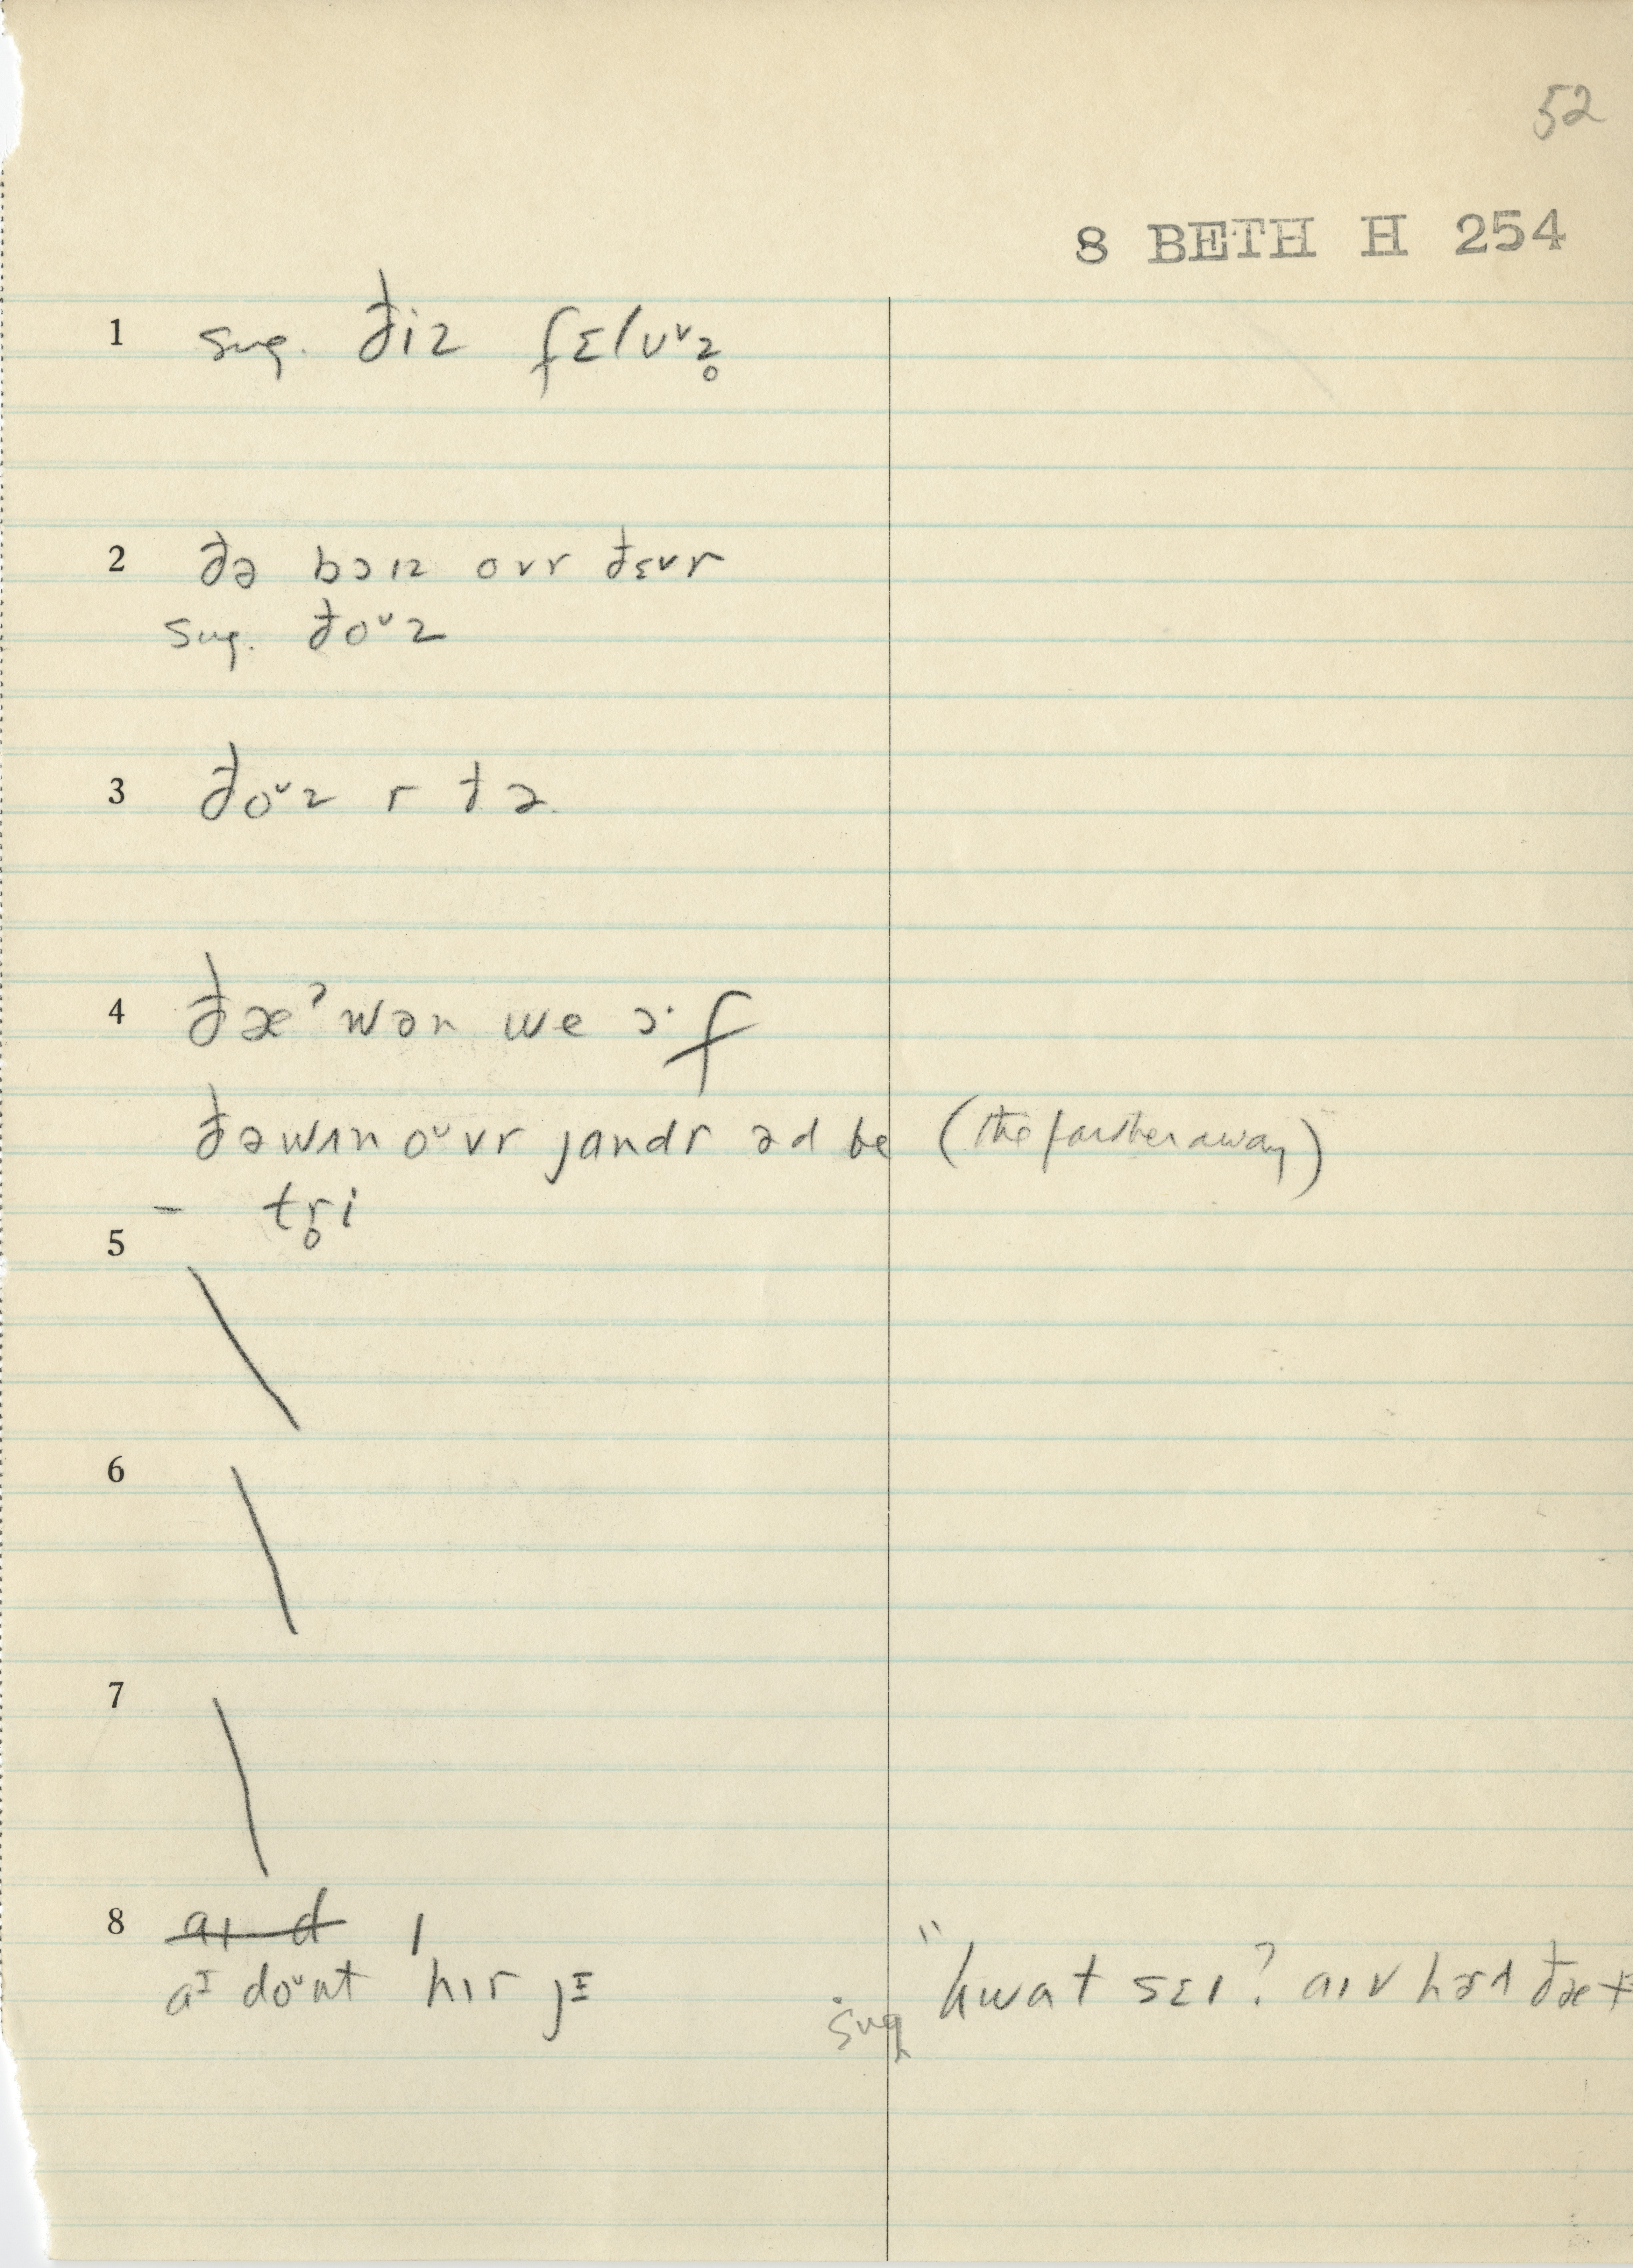 52
8 BETH H 254
1 sug. ðiz fɛlᴜᵛz̥
2 ðə bɔɪz ovr ðɛvr
sug. ðoᵛz
3 ðoᵛz r ðə
4 ðæˀ wən we ɔ·f
ðəwʌn oᵛvr jandr əd be (the farther away)
- tr̥i
5
6
7
8 aɪ d
aᴵ doᵛnt hɪr jᴵ
sug "hwat sɛɪ? aɪv hərd ðæt